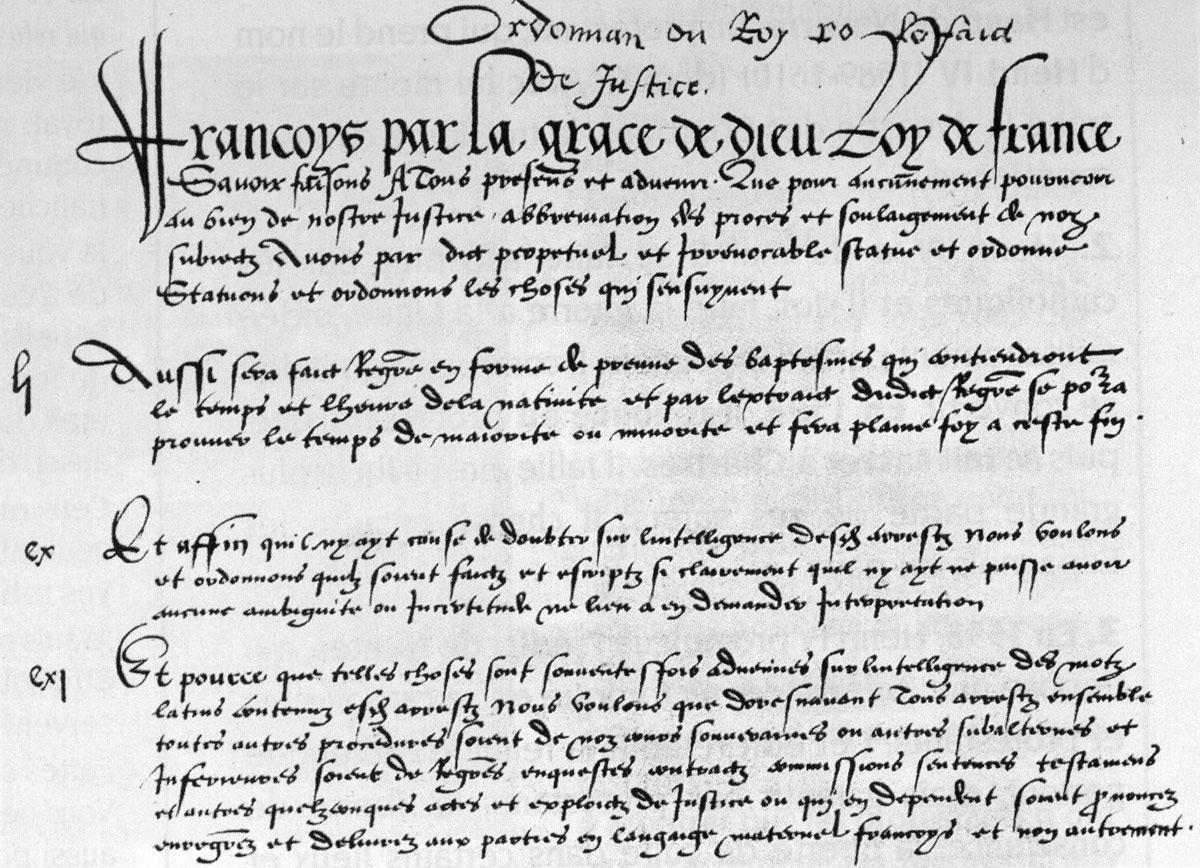 Ordonnan du Roy ro le faid
De Justice.
Francoys par la grace de dieu Roy de france
Savoir faisons A Tous presens et advenir. Que pour aucunement pourveoir
au bien de nostre Justice, abbreviation des proces et soulaigement de noz
subiectz Avons par dict perpetuel et Irrevocable statue et ordonne
Statuons et ordonnons les choses qui sensuyvent
Aussi sera faict Regre en forme de preuve des baptesmes qui contiendront
le temps et lheure dela nativite et par lextraict dudict Regre se porra
prouver le temps de maiorite ou minorite et fera plaine foy a ceste fin.
cx Et affin quil ny ayt cause de doubter sur lintelligence desd arrestz Nous voulons
et ordonnons quilz soient faictz et escriptz si clairement quil ny ayt ne puisse avoir
aucune ambiguite ou Incertitude ne lieu a en demander Interpretation
cxi Et pource que telles choses sont souventesffois advenues sur lintelligence des motz
latins contenuz esd arrestz Nous voulons que doresnavant Tous arrestz ensemble
toutes autres procedures soient de noz cours souveraines ou autres subalternes et
Inferieures soient de Regres enquestes contractz commissions sentences testamens
et autres quelzconques actes et exploictz de Justice ou qui en dependent soient pronuncez
enregrez et delivrez aux parties en langaige maternel francoys et non autrement.